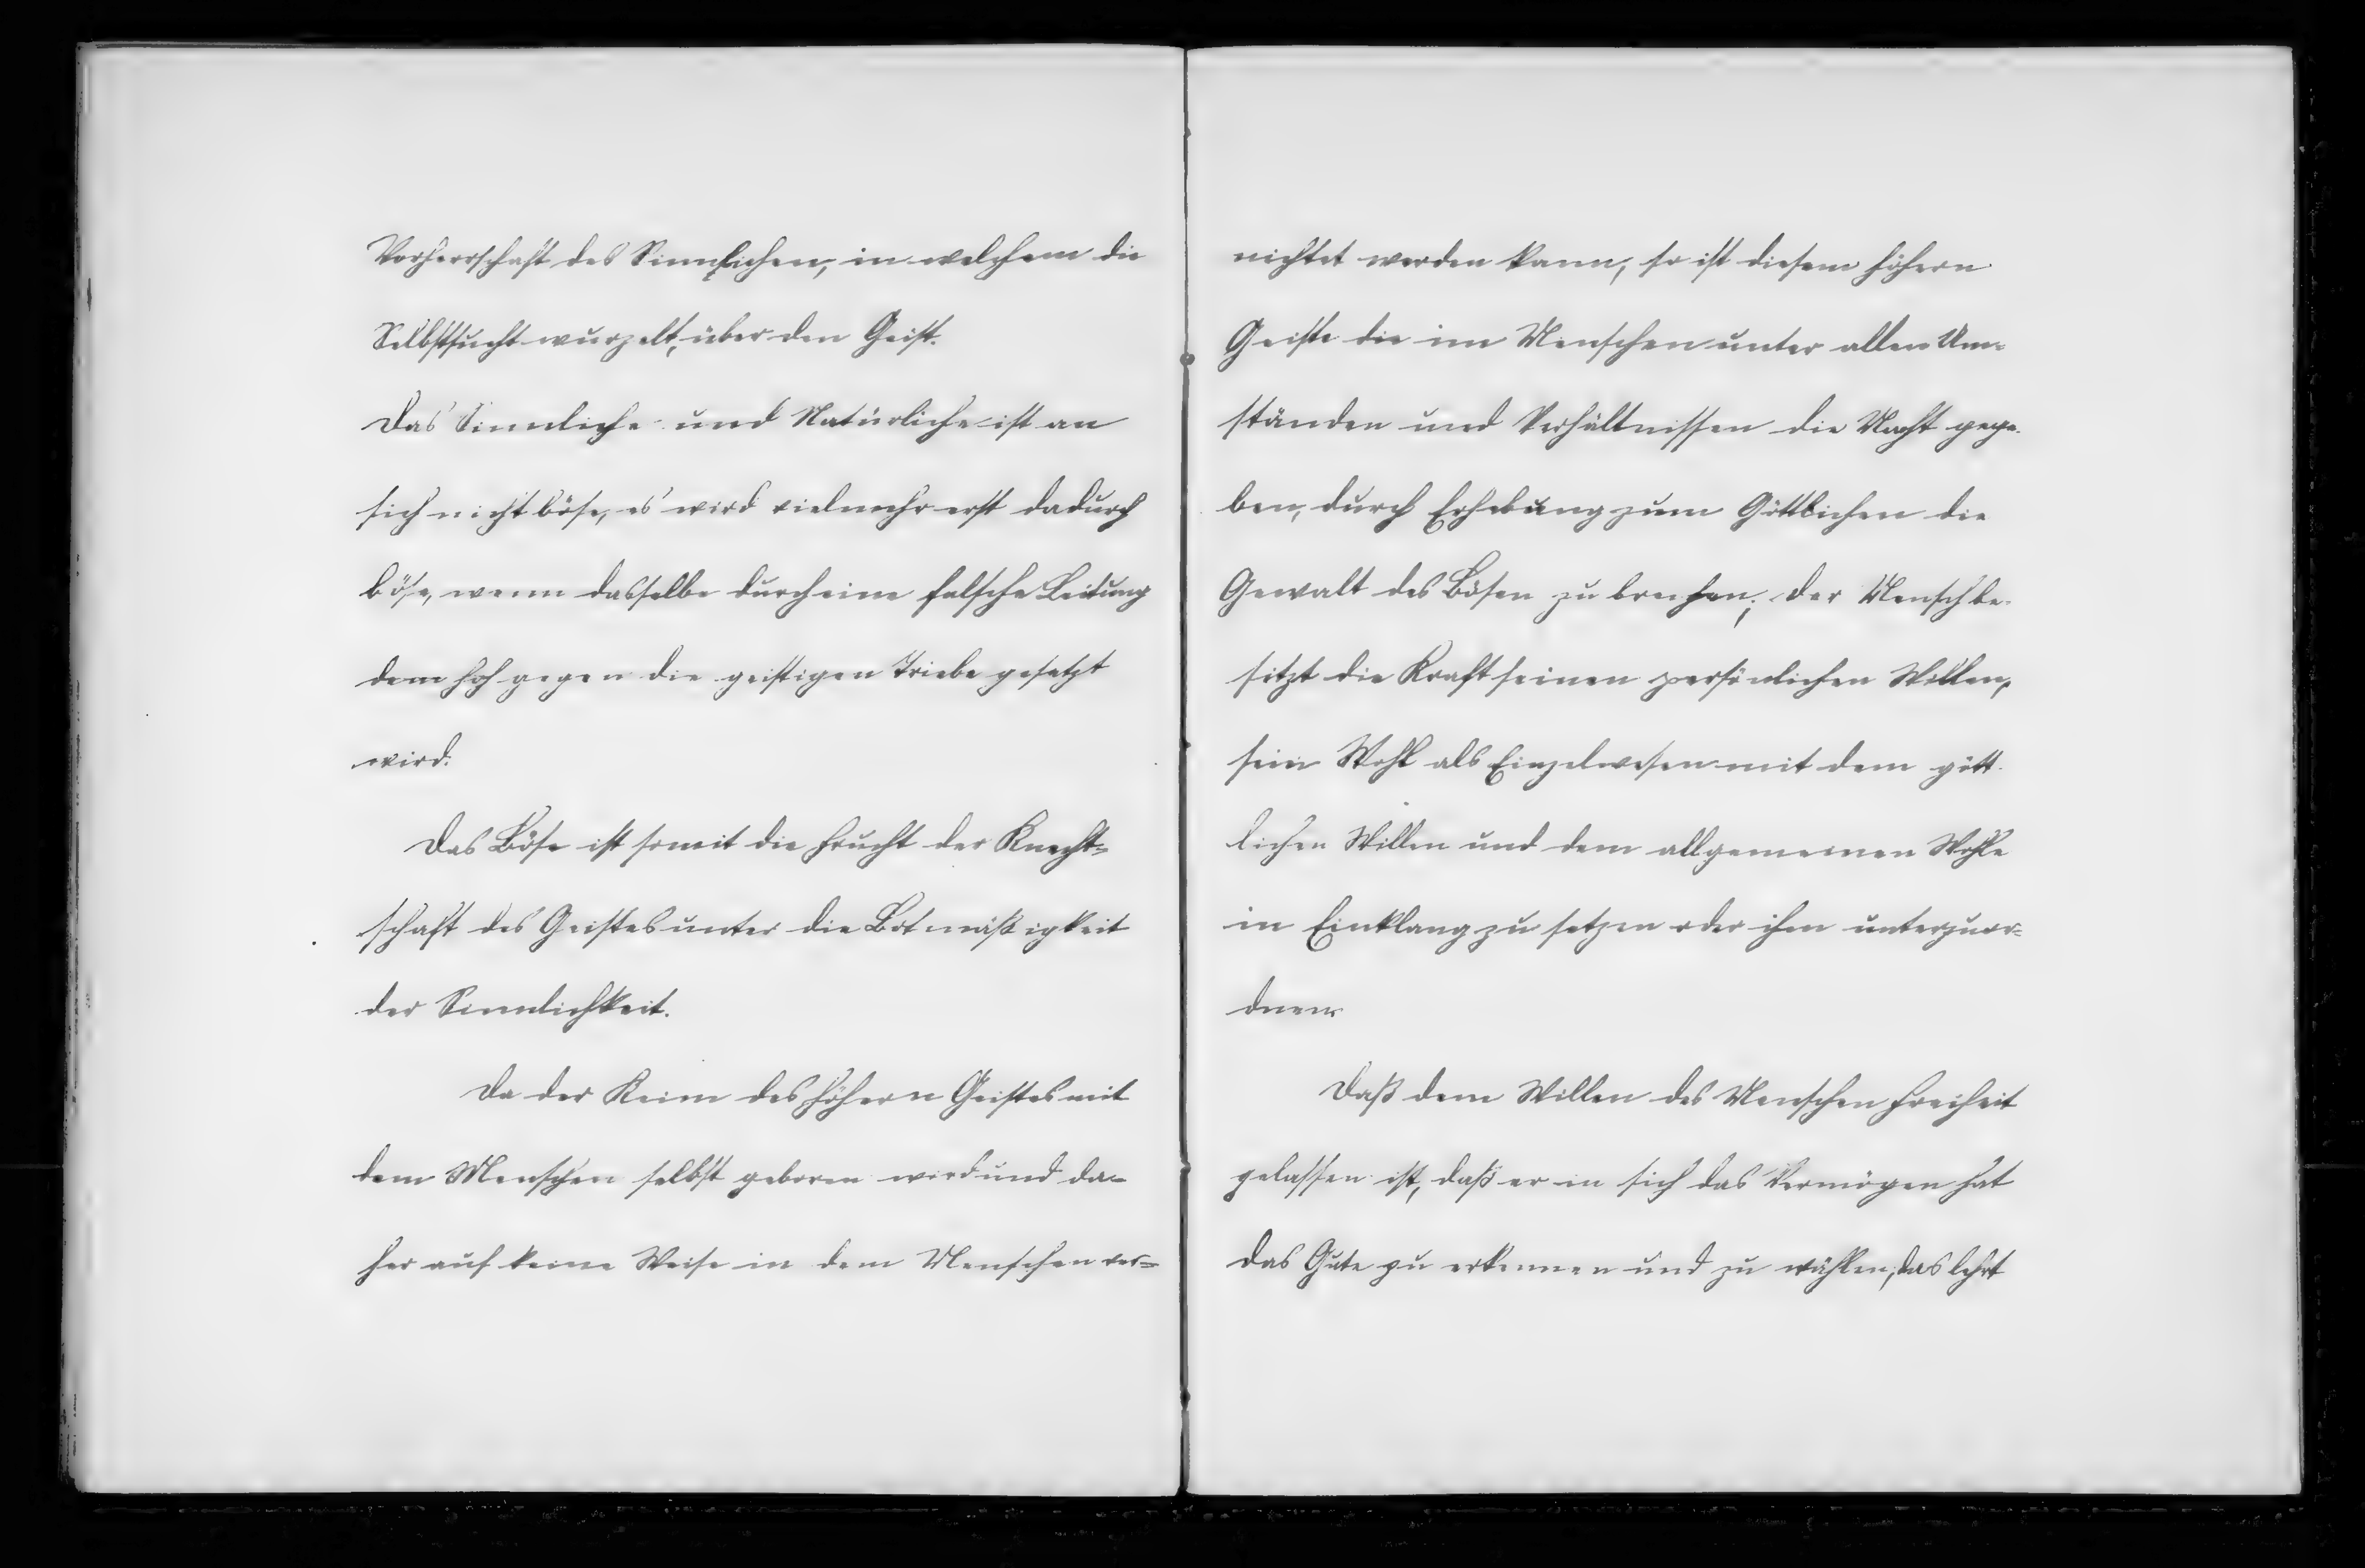 Vorherrschaft des Sinnlichen, in welchem die
Selbstsucht wurzelt, über den Geist.
Das Sinnliche und Natürliche ist an
sich nicht böse, es wird vielmehr erst dadurch
böse, wenn dasselbe durch eine falsche Leitung
dem hoh gegen die geistigen Triebe gesetzt
wird.
Das Böse ist somit die Frucht der Knecht-
schaft des Geistes unter die Botmäßigkeit
der Sinnlichkeit.
Da der Keim des höhern Geistes mit
dem Menschen selbst geboren wird und da-
her auf keine Weise in dem Menschen ver-
nichtet werden kann, so ist diesem höhern
Geiste die im Menschen unter allen Um-
ständen und Verhältnissen die Macht gege-
ben, durch Erhebung zum Göttlichen die
Gewalt des Bösen zu brechen; der Mensch be-
sitzt die Kraft seinen persönlichen Willen,
sein Wohl als Einzelwesen mit dem gött-
lichen Willen und dem allgemeinen Wohle
in Einklang zu setzen oder ihm unterzuor-
dnen.
Daß dem Willen des Menschen Freiheit
gelassen ist, daß er in sich das Vermögen hat
das Gute zu erkennen und zu wählen, das lehrt